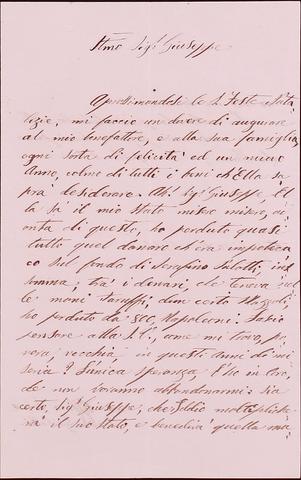 Ilmo Sigr Giuseppe
Aprossimandose le S. Feste Nata
lizie, mi faccio un dovere di augurare
al mio benefattore, e alla sua famiglia
ogni sorta di felicità ed un nuovo
Anno, colmo di tutti i beni ch'Ella sa
prà desiderare. Ah! Sigr Giuseppe, El
la sà il mio stato misero misero, ad
onta di questo, ho perduto quasi
tutto quel danaro ch'era
co sul fondo di Serafino in
somma, tra i denari, che teneva nel
le mani
ho perduto da 300 Napoleoni. Lascio
pensare alla S. V., come mi trovo, po
vera, vecchia, in questi anni di mi
seria? L'unica speranza, è in loro,
che non voranno abbandonarmi: sia
certo, Sigr Giuseppe, che Iddio moltepliche
rà il suo stato, e benedirà quella ma